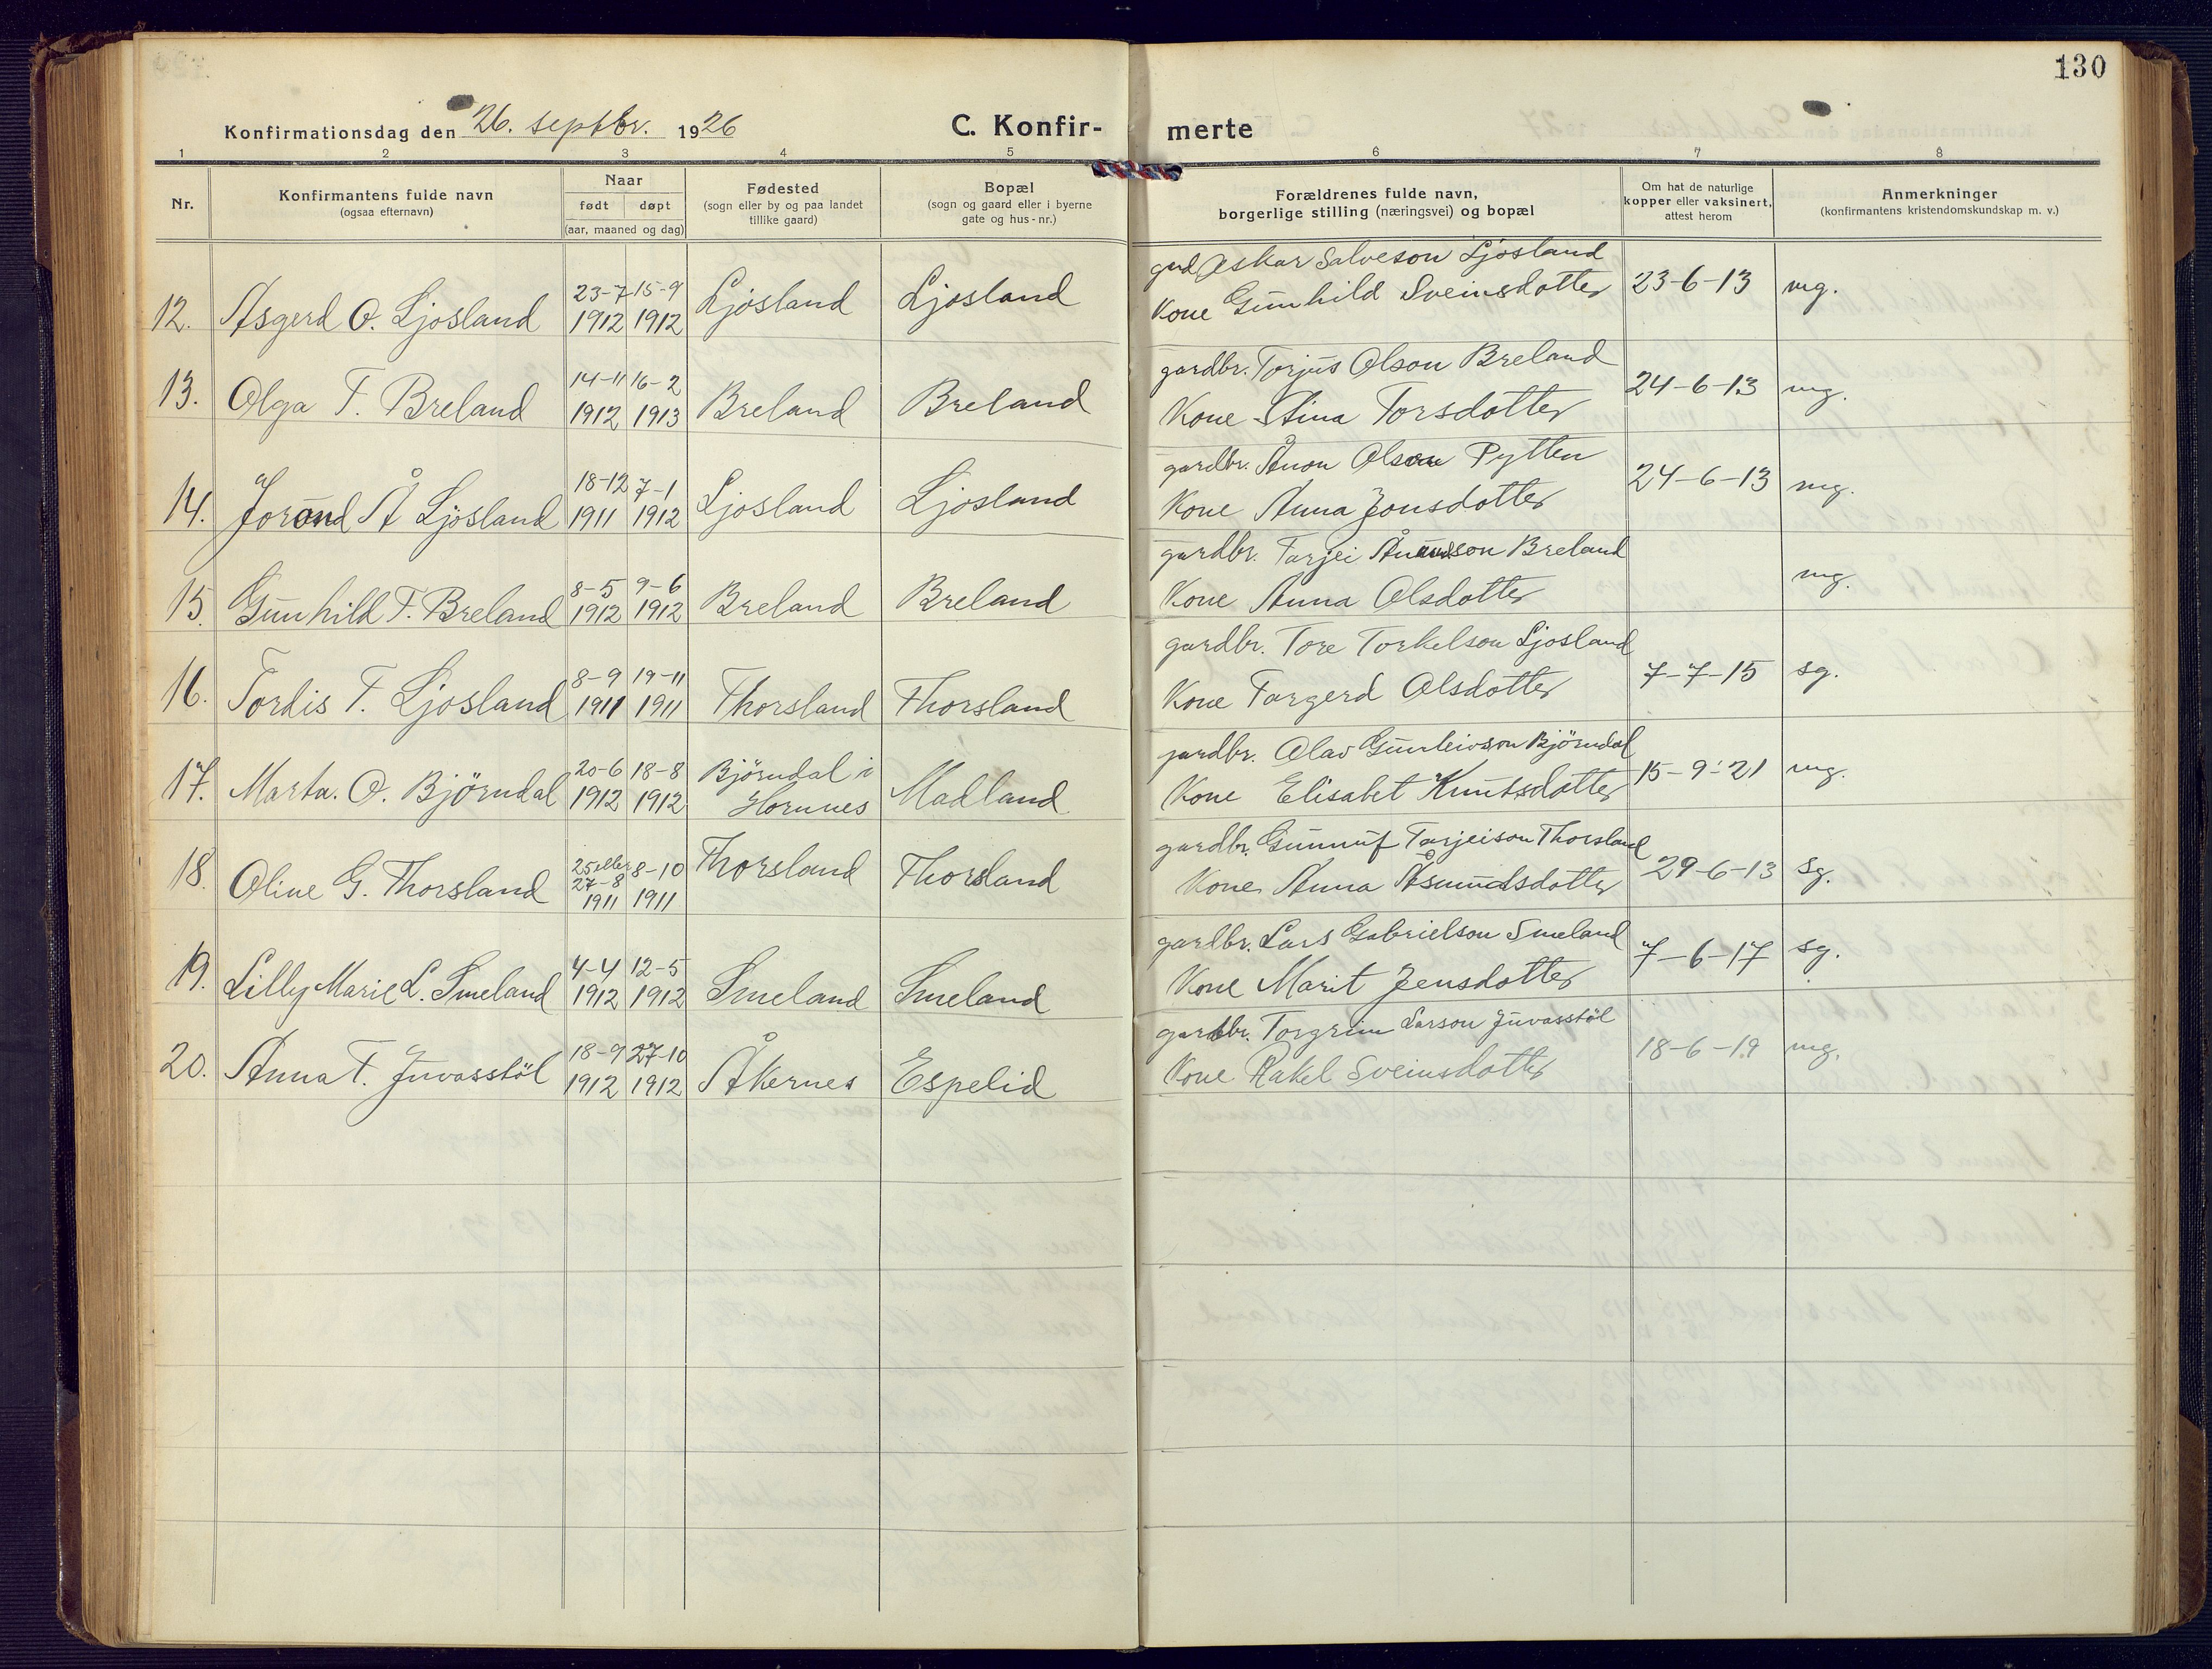 130
Konfirmationsdag den 26. septbr. 1926
C. Konfir-
merte
1 2 3 4 5 6 7 8
Nr.
Konfirmantens fulde navn
(ogsaa efternavn)
Naar
født døpt
(aar, maaned og dag)
Fødested
(sogn eller by og paa landet
tillike gaard)
Bopæl
(sogn og gaard eller i byerne
gate og hus-nr.)
Forældrenes fulde navn,
borgerlige stilling (næringsvei) og bopæl
Om hat de naturlige
kopper eller vaksinert,
attest herom
Anmerkninger
(konfirmantens kristendomskundskap m. v.)
grd Oskar Salveson Ljosland
23-7 15-9
12. Asgerd O. Ljosland 1912 1912 Ljosland Ljosland Kone Gunhild Sveinsdotter 23-6-13 mg.
14-11 16-2 gardbr. Torjus Olson Breland
13. Olga T. Breland 1912 1913 Breland Breland Kone Stina Torsdotter 24-6-13 mg.
18-12 7-1 gardbr. Ånon Olson Pytten
14. Jorond Å Ljosland 1911 1912 Ljosland Ljosland Kone Anna Jonsdotter 24-6-13 mg.
8-5 9-6 gardbr. Tarjei Ånundson Breland
15. Gunhild T. Breland 1912 1912 Breland Breland Kone Anna Olsdotter mg.
8-9 19-11 gardbr. Tore Torkelson Ljosland
16. Tordis T. Ljosland 1911 1911 Thorsland Thorsland Kone Targerd Olsdotter 7-7-15 sg.
20-6 18-8 Björndal i gardbr. Olav Gunleivson Björndal
17. Marta. O. Björndal 1912 1912 Hornnes Madland Kone Elisabet Knutsdotter 15-9-21 mg.
25 eller 8-10 gardbr. Gunnuf Tarjeison Thorsland
27-8
18. Oline G. Thorsland 1911 1911 Thorsland Thorsland Kone Anna Åsmundsdotter 29-6-13 sg.
4-4 12-5 gardbr. Lars Gabrielson Smeland
19. Lilly Marie L. Smeland 1912 1912 Smeland Smeland Kone Marit Jensdotter 7-6-17 sg.
18-9 27-10 gardbr. Torgrim Larson Juvasstöl
20. Anna T. Juvasstöl 1912 1912 Åkernes Espelid Kone Rakel Sveinsdotter 18-6-19 mg.